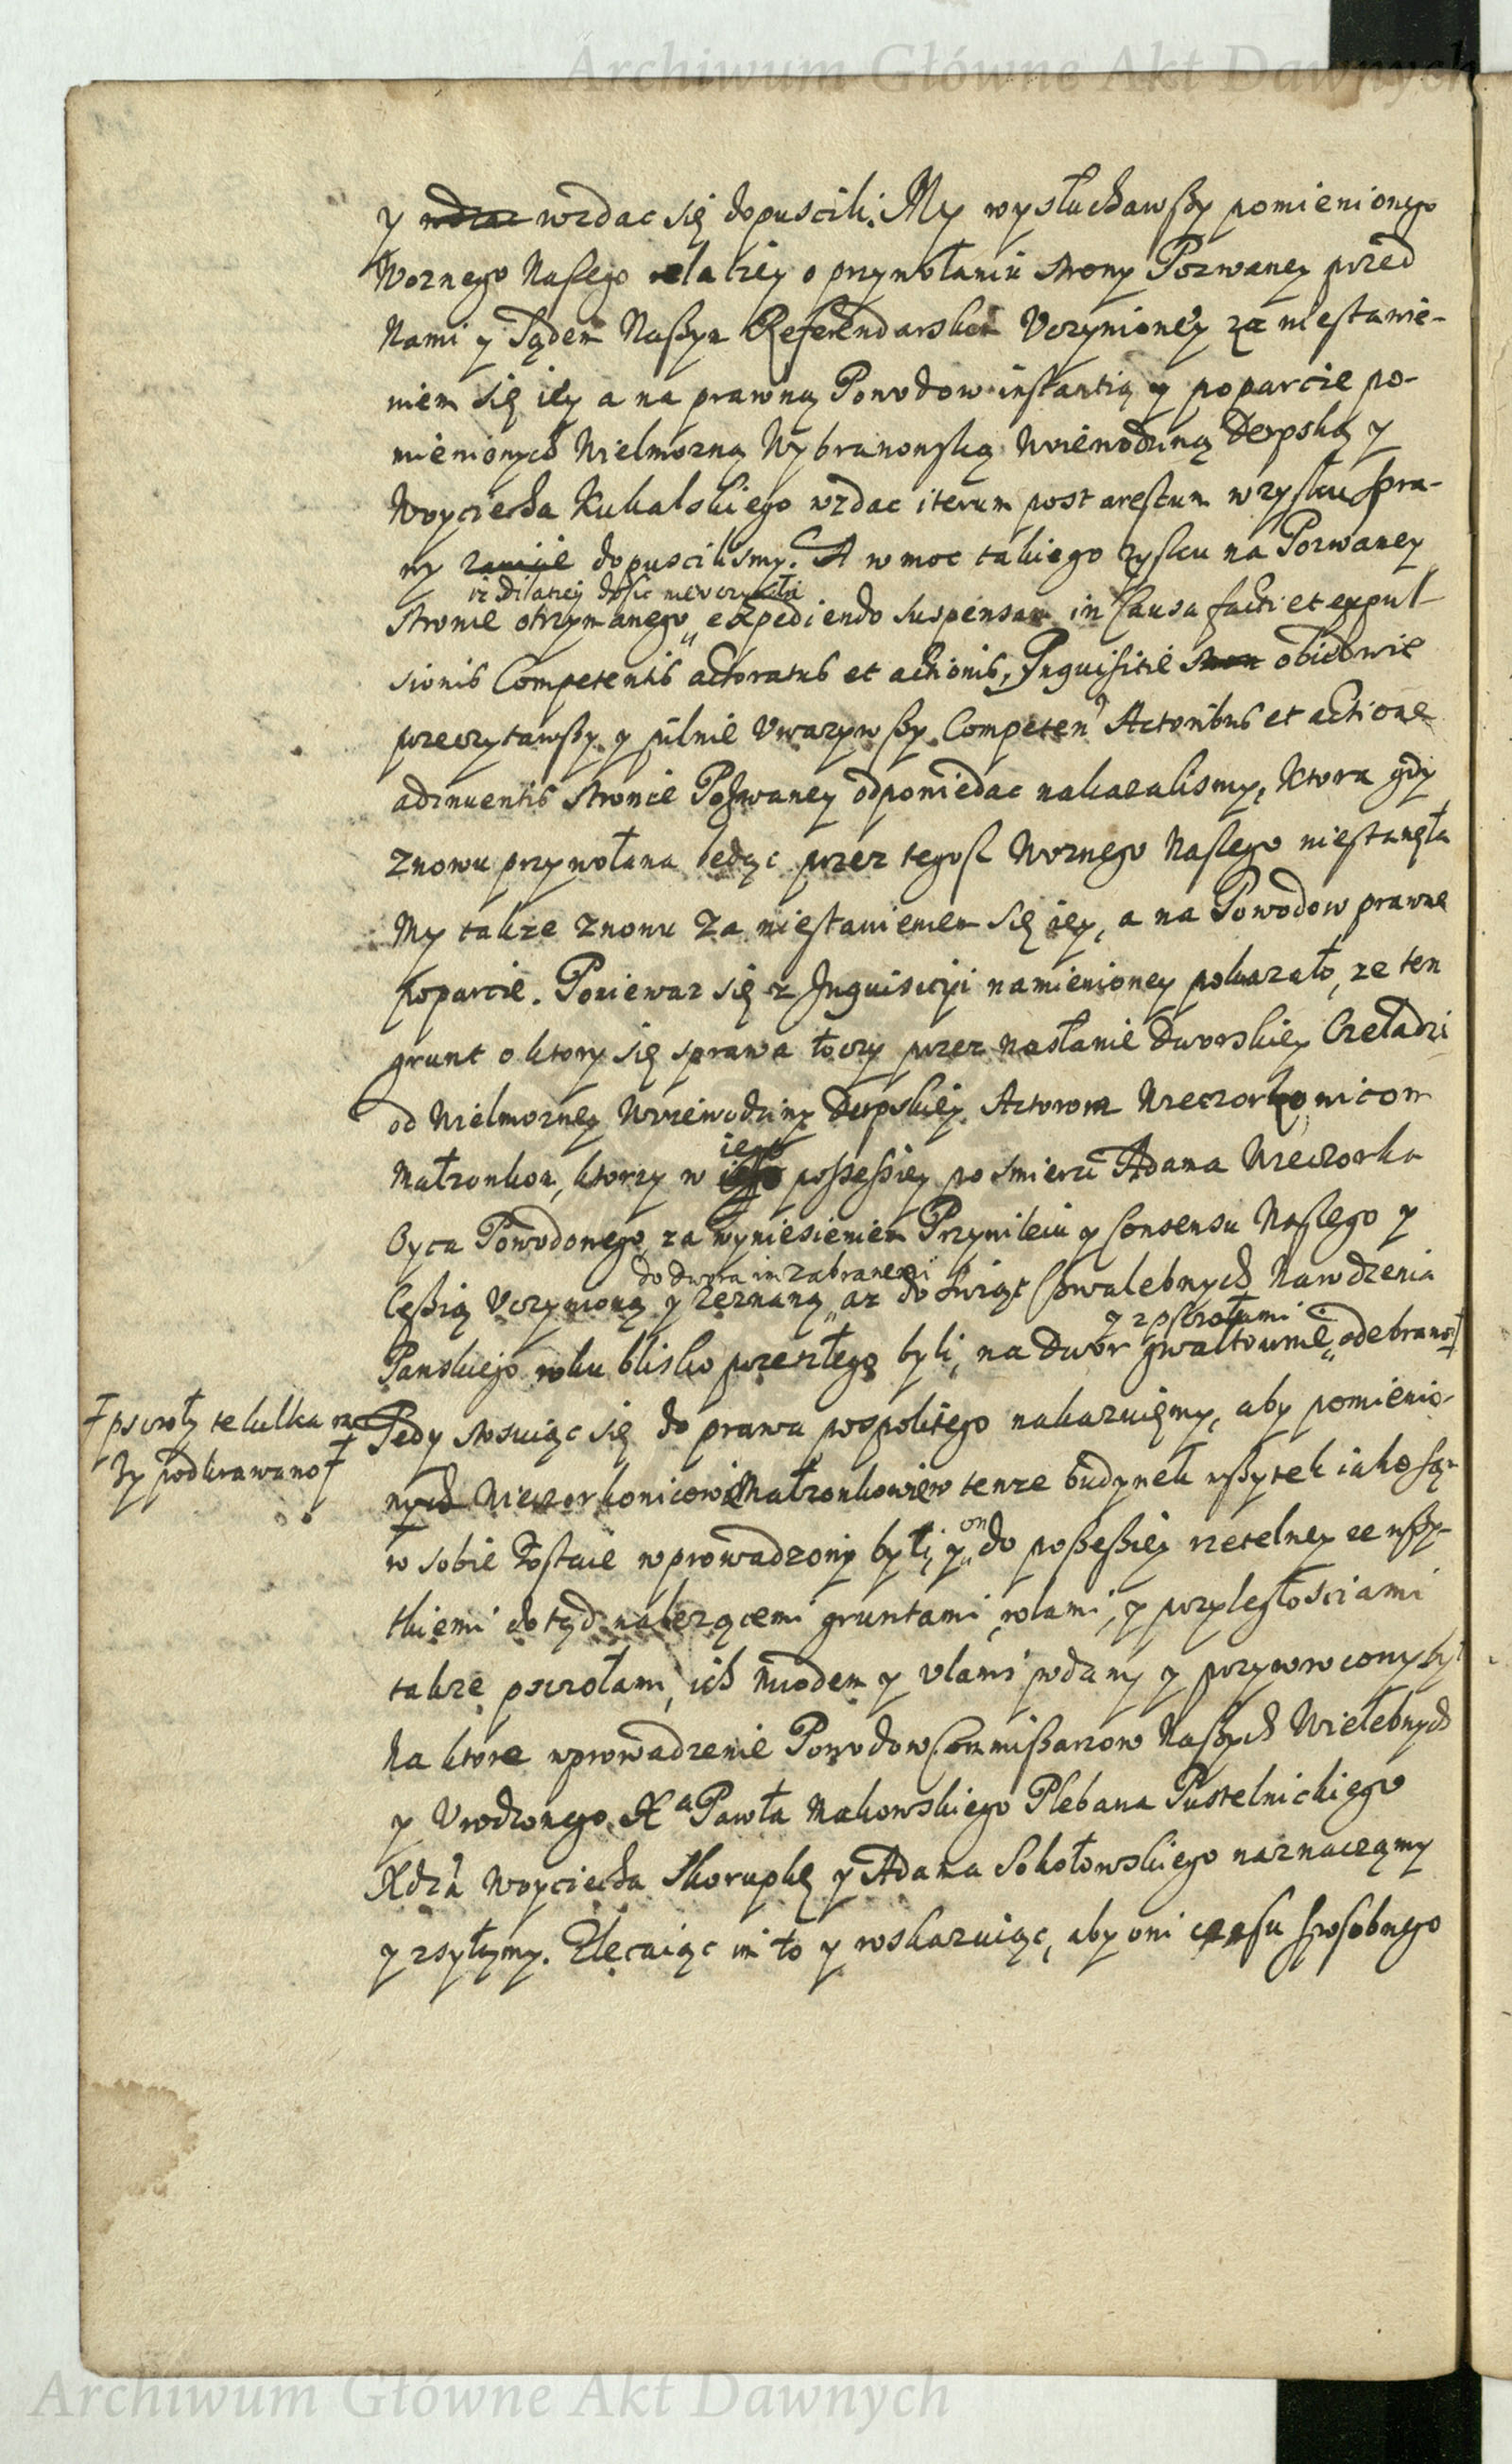 Archiwum Główne Akt Dawnych
y wzdac wzdac się dopuscili. My wysłuchawszy pomienionego
Woznego Naszego relatiey o przywołaniu strony Pozwaney przed
Nami y Sądem Naszym Referendarskim Vczynioney za niestawie-
niem się iey a na prawną Powodow instantią y poparcie po-
mienionych Wielmozną Wybranowską Woiewodziną Derpską y
Woyciecha Kukalskiego wzdac iterum post arestum w zysku spra-
wy dopuscilismy. A w moc takiego zysku na Pozwaney
iz dilatiey dosic nievczyniła
stronie otrzymanego expediendo suspensam in Causa facti et expul-
sionis Competentis actoratus et actionis, Inquisitie stron obiedwie
przeczytawszy y pilnie Vwazywszy Competen Actoribus et actione
adinuentis stronie Pozwaney odpowiedac nakazalismy, Ktora gdy
znowu przywołana będąc przez tegosz Woznego Naszego niestanęła
My takze znowu za niestawieniem się iey, a na Powodow prawne
poparcie. Poniewaz się z Inquisicyi namienioney pokazało, ze ten
grunt o ktory się sprawa toczy przez nasłanie Dworskiey Czeladzi
od Wielmozney Woiewodziny Derpskiey Actorom Wieczorkowicom
Małzonkom, ktorzy w iego possessiey po smierci Adama Wieczorka
Oyca Powodowego, za wyniesieniem Przywileiu y Consensu Naszego y
do dwora im zabranemi
Cessią Vczynioną y zeznaną az do Swiąt Chwalebnych Narodzenia
y z pszczołami
Panskiego roku blisko przeszłego byli, na Dwor gwałtownie odebrano
pszczoły te kilka ra-
zy podkrawano
Tedy stosuiąc się do prawa pospolitego nakazuięmy, aby pomienio-
nych Wieczorkonicowie Małzonkowie w tenze budynek wszytek iako są-
w sobie zostaie wprowadzony byli, y on do possessiey rzetelney ze wszy-
tkiemi do tąd nalezącemi gruntami, rolami, y przyległosciami
takze pszczołami, ich miodem y vlami podany y przywrocony był
Na ktore wprowadzenie Powodow Commissarzow Naszych Wielebnych
y Vrodzonego Xa Pawła Makowskiego Plebana Pustelnickiego
Xdza Woyciecha Skorupkę y Adama Sokołowskiego naznaczamy
y zsyłamy. Zlecaiąc im to y roskazuiąc, aby oni czasu sposobnego
Archiwum Główne Akt Dawnych